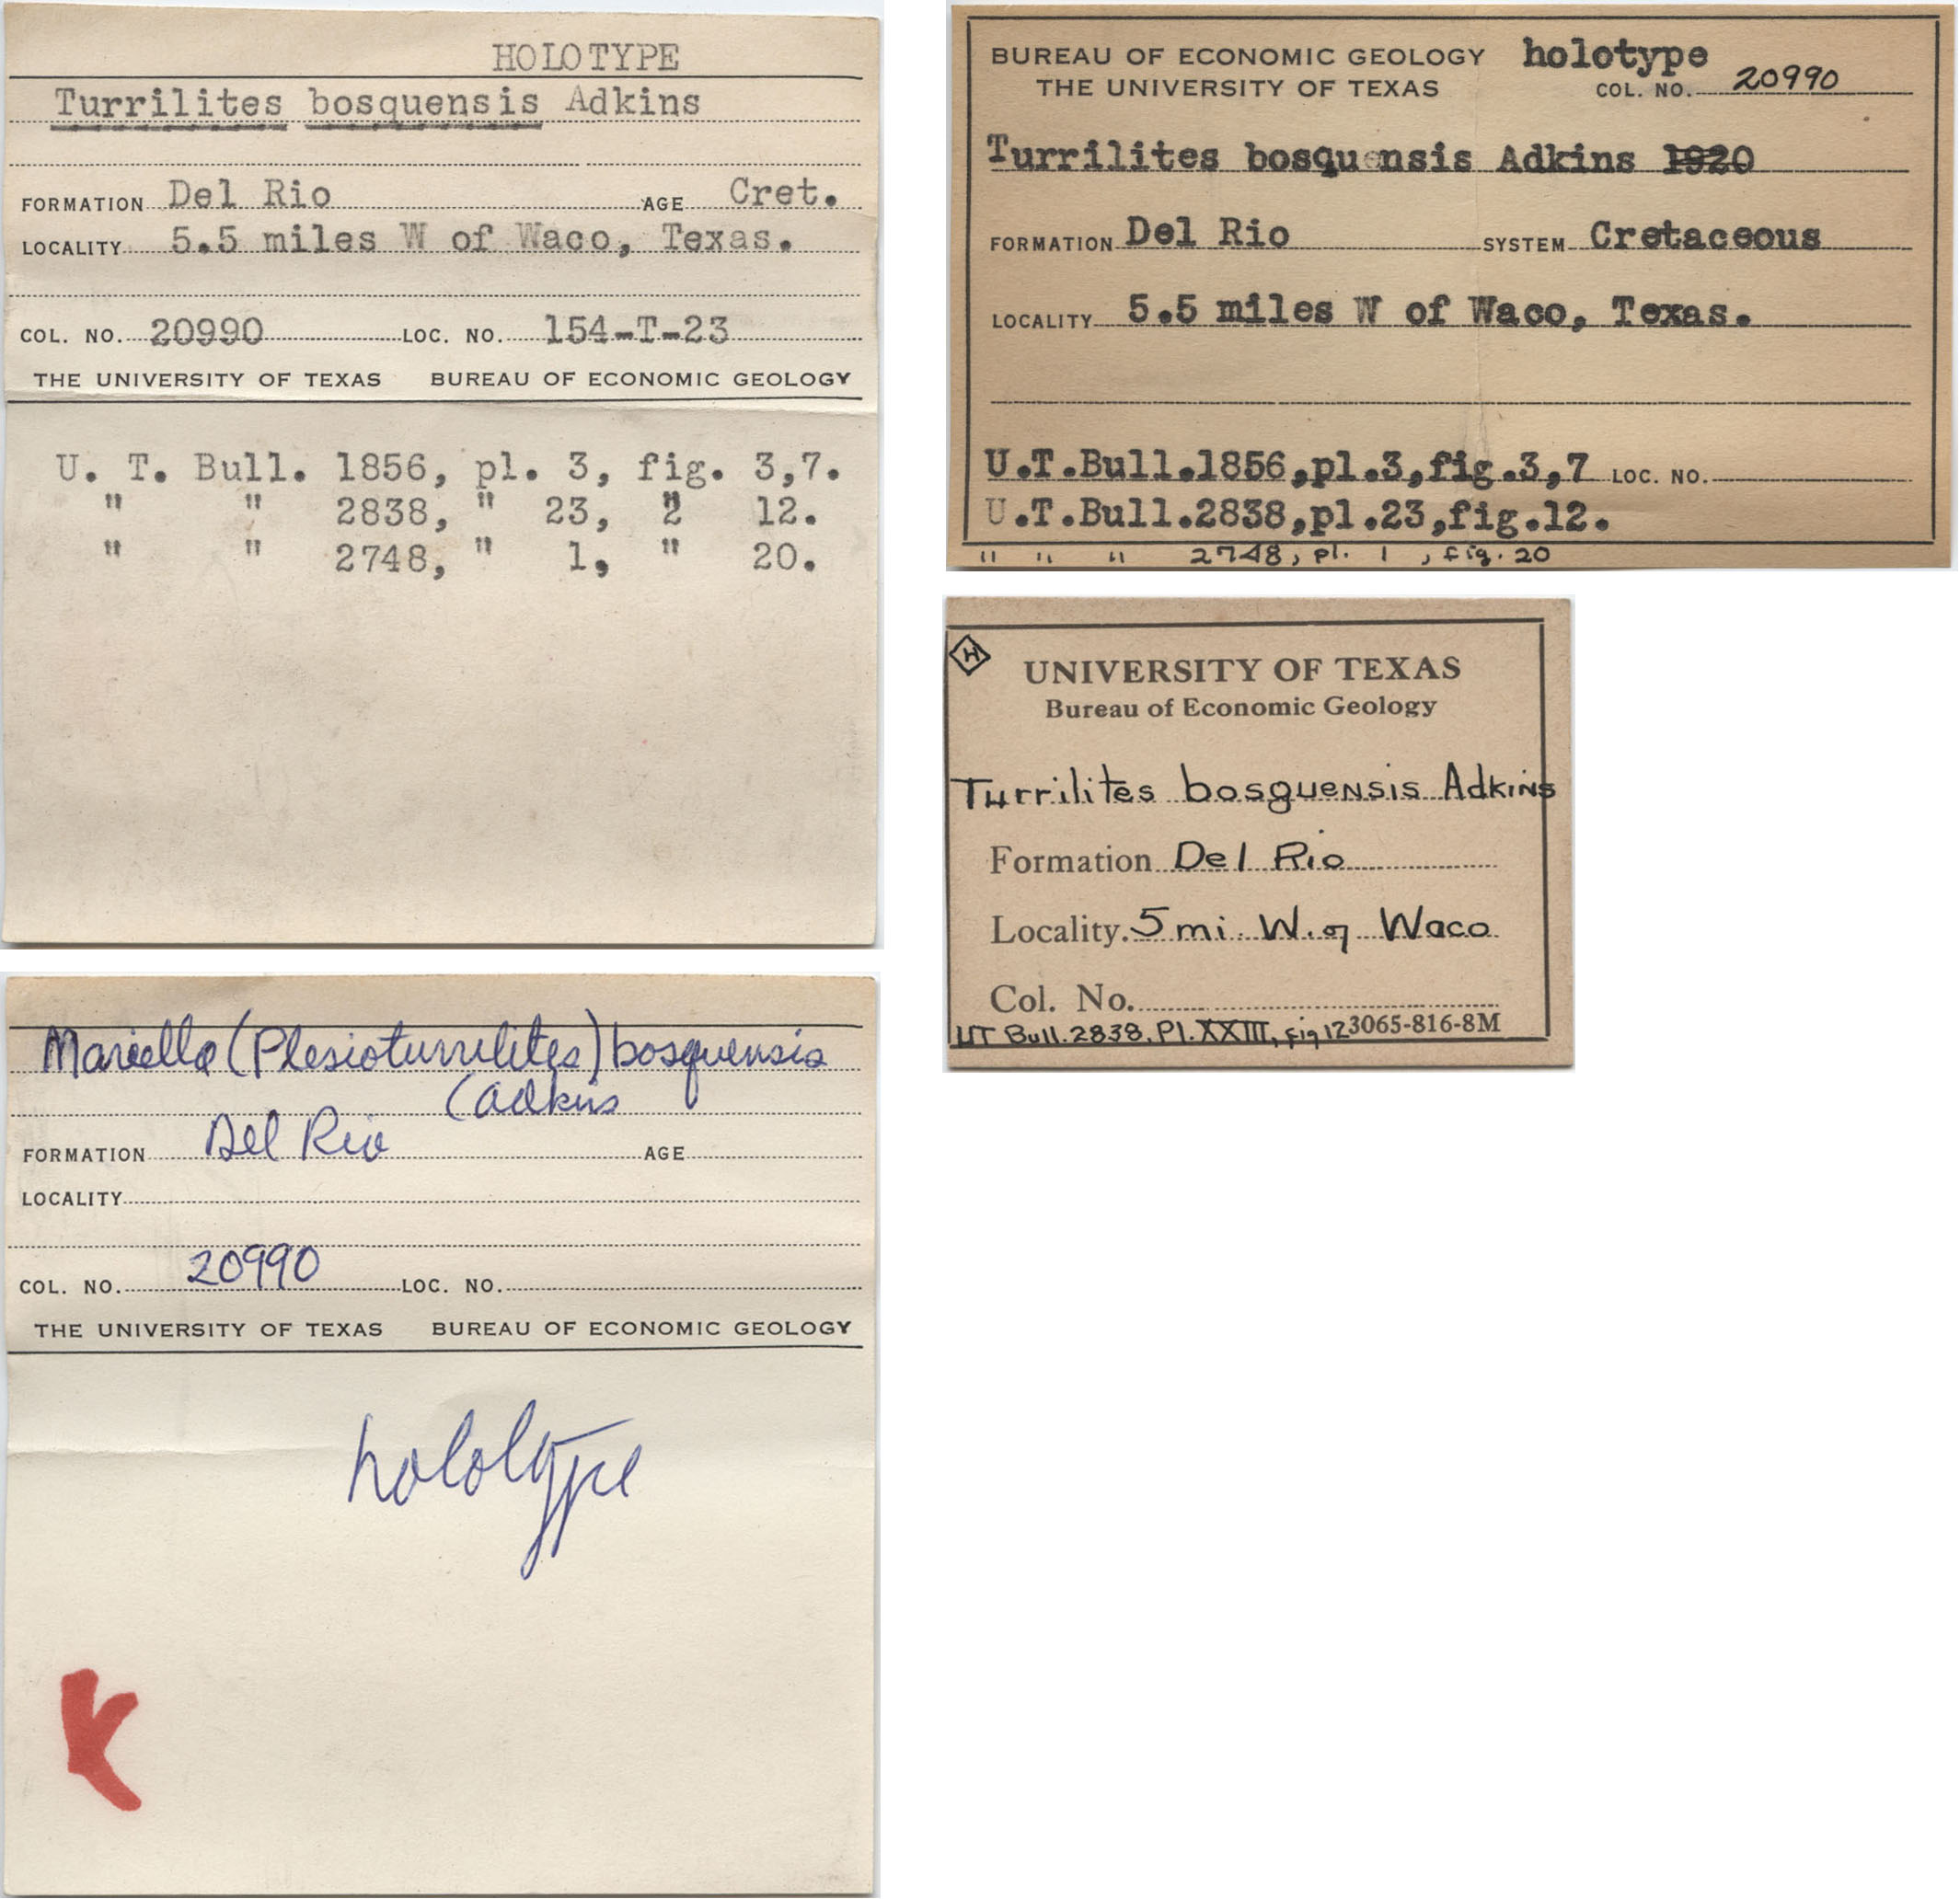 HOLOTYPE
Turrilites bosquensis Adkins
FORMATION Del Rio AGE Cret.
LOCALITY 5.5 miles W of Waco, Texas.
COL. NO. 20990 LOC. NO. 154-T-23
THE UNIVERSITY OF TEXAS BUREAU OF ECONOMIC GEOLOGY
U. T. Bull. 1856, pl. 3, fig. 3,7.
" " 2838, " 23, " 12.
" " 2748, " 1, " 20.
BUREAU OF ECONOMIC GEOLOGY holotype
THE UNIVERSITY OF TEXAS COL. NO. 20990
Turrilites bosquensis Adkins 1920
FORMATION Del Rio SYSTEM Cretaceous
LOCALITY 5.5 miles W of Waco, Texas.
U.T.Bull.1856,pl.3,fig.3,7 LOC. NO.
U.T.Bull.2838,pl.23,fig.12.
" " " 2748, pl. 1, fig. 20
H
UNIVERSITY OF TEXAS
Bureau of Economic Geology
Turrilites bosquensis Adkins
Formation Del Rio
Locality. 5 mi. W. of Waco
Col. No.
UT Bull. 2838, Pl. XXIII, fig 12 3065-816-8M
Mariella (Plesioturrilites) bosquensis
(Adkins
FORMATION Del Rio AGE
LOCALITY
COL. NO. 20990 LOC. NO.
THE UNIVERSITY OF TEXAS BUREAU OF ECONOMIC GEOLOGY
holotype
K